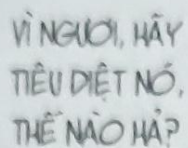 VÌ NGƯƠI, HÃY
TIÊU DIỆT NÓ,
THẾ NÀO HẢ?